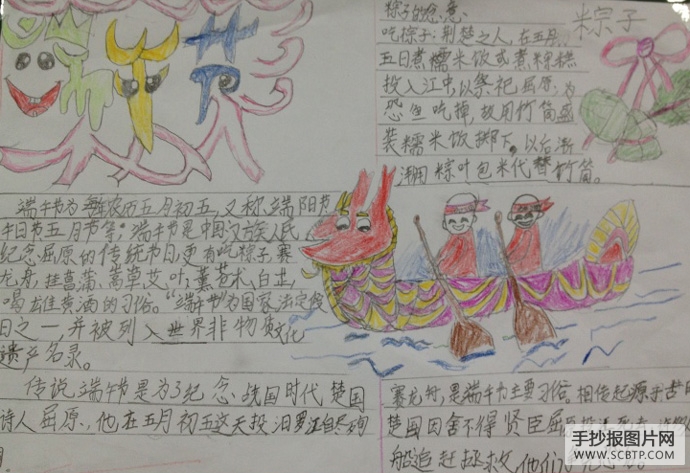 端午节
粽子的意思:
粽子
吃粽子:荆楚之人,在五月
五日煮糯米饭或煮粽糕
投入江中,以祭祀屈原,为
恐鱼吃掉,故用竹筒盛
装糯米饭掷下,以后渐
用粽叶包米代替竹筒。
端午节为每年农历五月初五,又称端阳节
午日节五月节等;端午节是中国汉族人民
纪念屈原的传统节日,更有吃粽子赛
龙舟,挂菖蒲、蒿草、艾叶,薰苍术、白芷,
喝雄黄酒的习俗。“端午节为国家法定假
日之一,并被列入世界非物质文化
遗产名录。
传说端午节是为了纪念战国时代楚国
诗人屈原,他在五月初五这天投汨罗江自尽殉
赛龙舟,是端午节主要习俗。相传起源于古时
楚国因舍不得贤臣屈原
船追赶拯救他们
手抄报图片网
WWW.SCBTP.COM